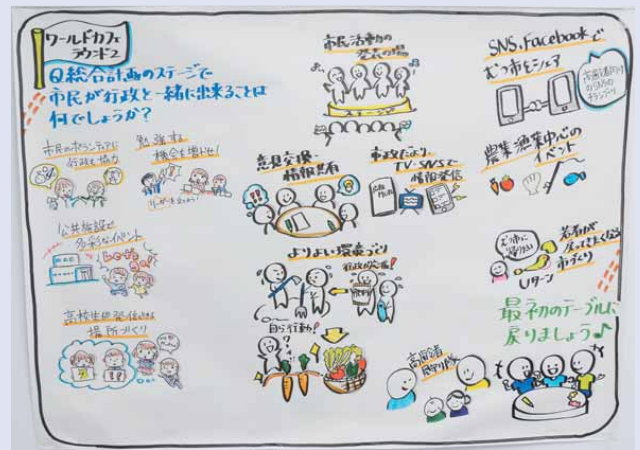 ワールドカフェ
ラウンド2
Q総合計画のステージで
市民が行政と一緒に出来ることは
何でしょうか?
市民のボランティアに
行政も協力
勉強する
機会を増やせ!
公共施設で
多彩なイベント
Let's go!
高校生が発信できる
場所づくり
市民活動の
発表の場
ステージ
意見交換・
情報共有
市政だより、
TV・SNSで
情報発信
よりよい環境づくり
行政の応援!
自ら行動!
高齢者
見守り隊
SNS、Facebookで
むつ市をシェア
農業漁業中心の
イベント
むつ市に
帰りたい
若者が
戻ってきたくなる
市づくり
Uターン
最初のテーブルに
戻りましょう♪